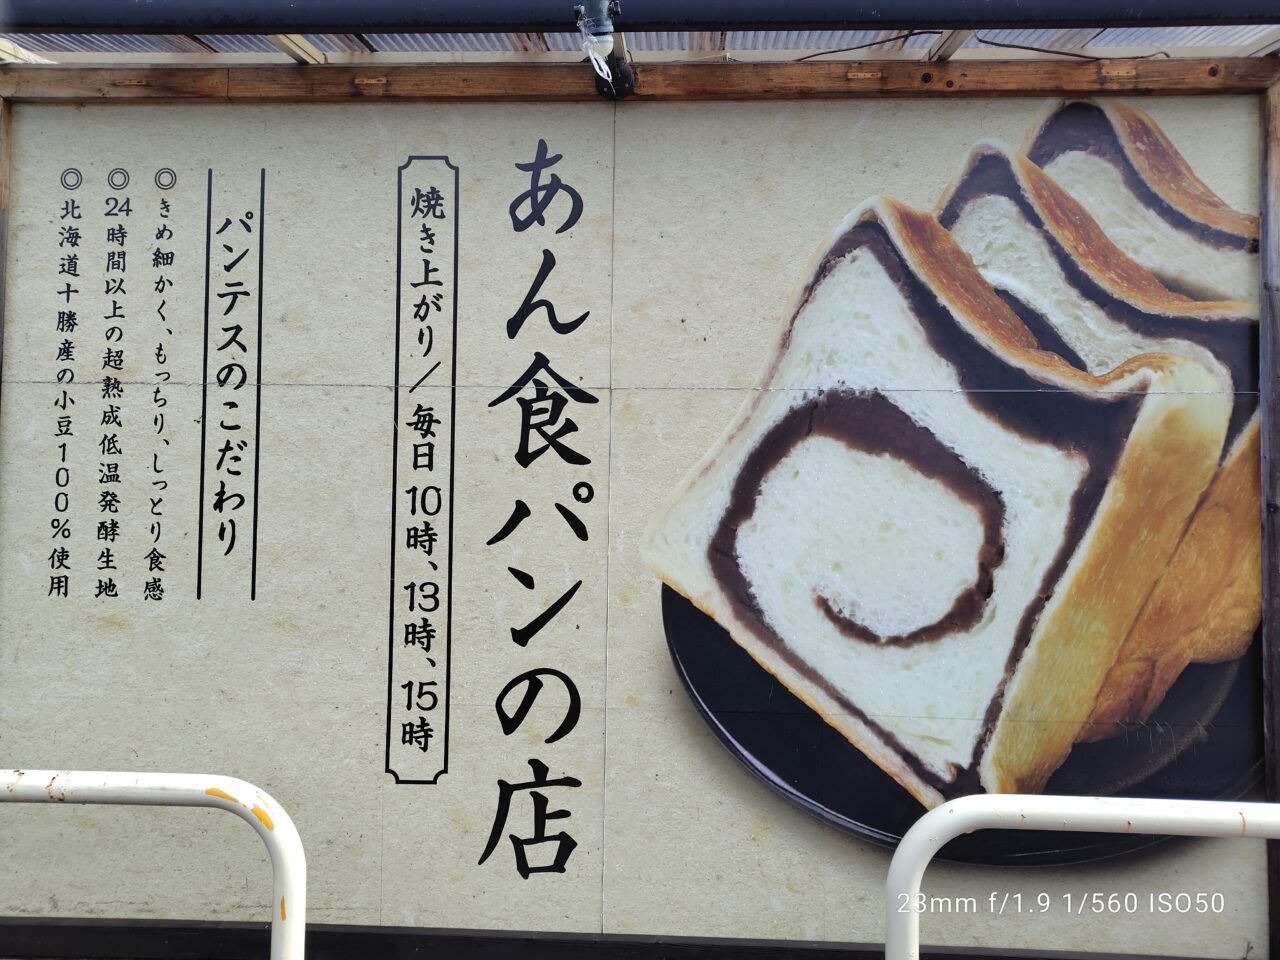 あん食パンの店
焼き上がり／毎日10時、13時、15時
パンテスのこだわり
◎きめ細かく、もっちり、しっとり食感
◎24時間以上の超熟成低温発酵生地
◎北海道十勝産の小豆100%使用
23mm f/1.9 1/560 ISO50